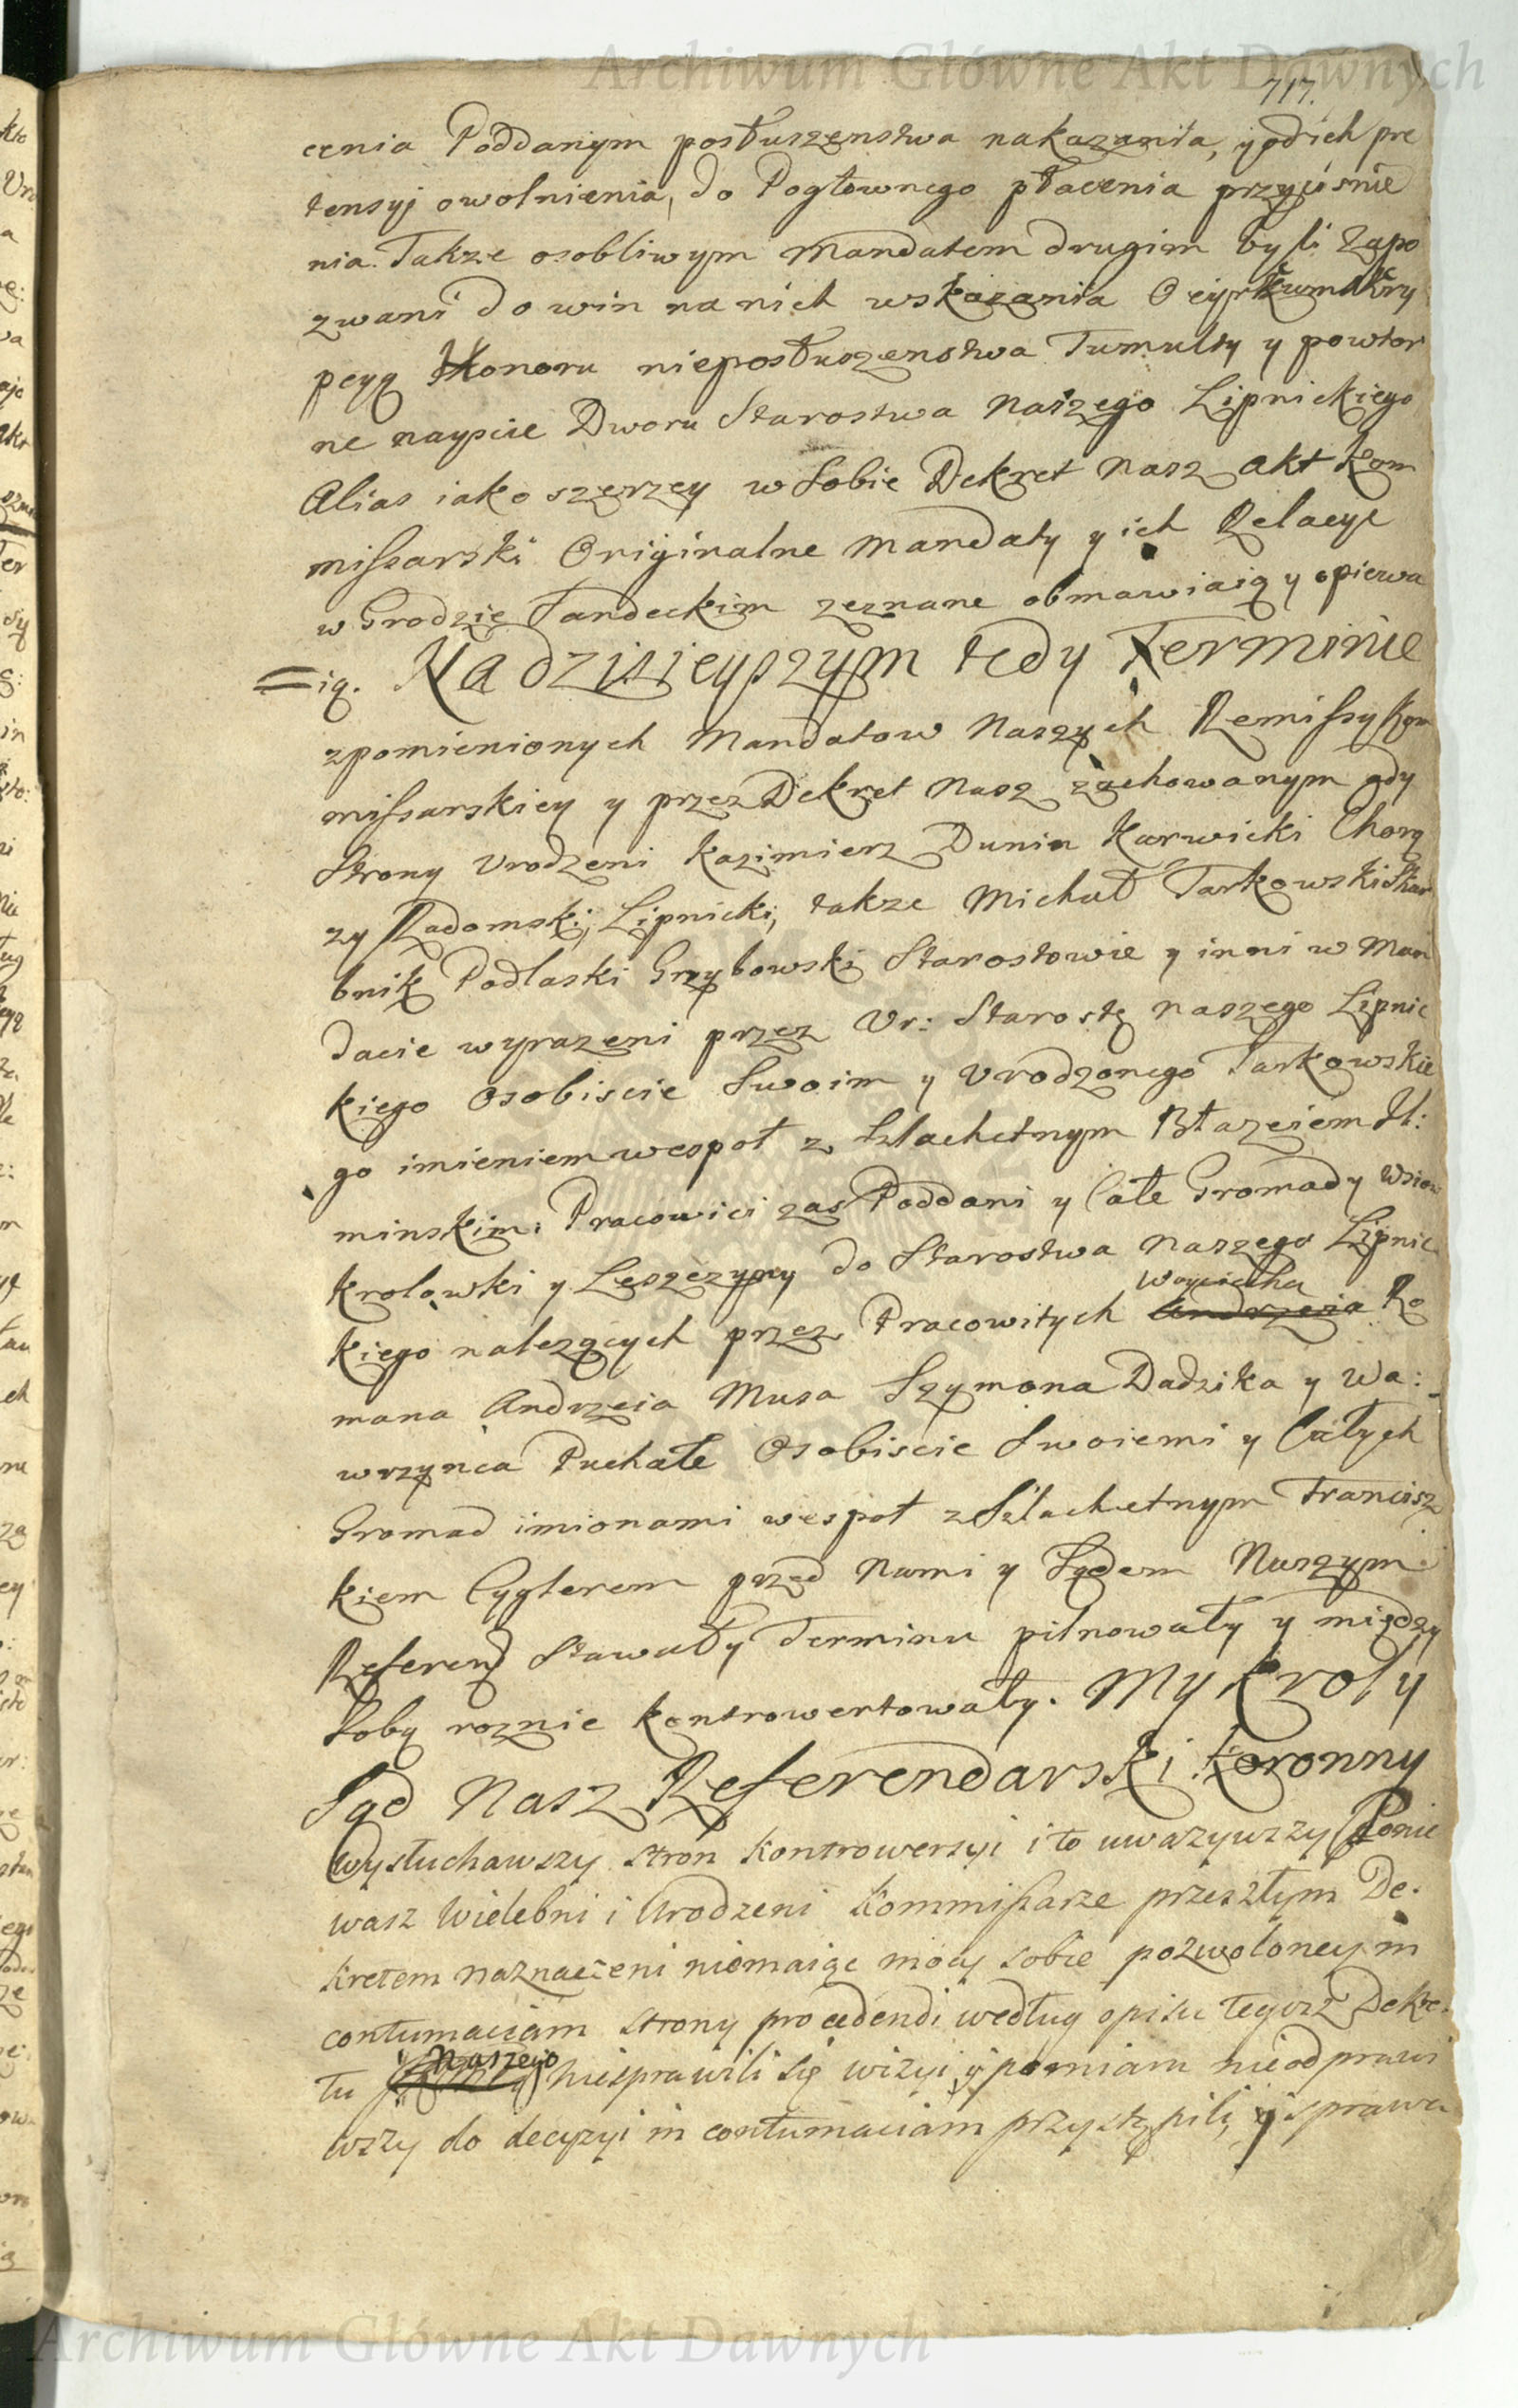 Archiwum Główne Akt Dawnych
717.
cenia Poddanym posłuszenstwa nakazania, y od ich pre
tensyi owolnienia, do Pogłownego płacenia przyciśnie
nia. Takze osobliwym Mandatem drugim byli Zapo
zwani do win na nich wskazania O
pcyą Honoru nieposłuszenstwa Tumulty y powtor
ne nayscie Dworu Starostwa Naszego Lipnickiego
Alias iako szerzey w Sobie Dekret Nasz Akt Kom
missarski Originalne Mandaty y ich Relacye
w Grodzie Sandeckim zeznane obmawiaią y opiewa
=ią. Na dzisieyszym tedy Terminie
zpomienionych Mandatow Naszych Remissy Kom
missarskiey y przez Dekret Nasz zachowanym gdy
Strony Urodzeni Kazimierz Dunin Karwicki Chorą
zy Radomski, Lipnicki, takze Michał Tarkowski Skar
bnik Podlaski Grzybowski Starostowie y inni w Man
dacie wyrazeni przez Ur: Starostę Naszego Lipnic
kiego Osobiscie Swoim y Urodzonego Tarkowskie
go imieniem wespoł z Szlachetnym Błazeiem
minskim: Pracowici zas Poddani y Całe Gromady Wsiow
Krolowki y Leszczyny do Starostwa Naszego Lipnic
kiego nalezących przez Pracowitych Woyciecha Andrzeia Ro
mana Andrzeia Musa Szymona Dadzika y Wa:
wrzynca Puchałę Osobiscie Swoiemi y Całych
Gromad imionami wespoł z Szlachetnym Francisz
kiem Cyglerem przed Nami y Sądem Naszym
Referend Stawały Terminu pilnowały y między
Sobą roznie kontrowertowały. My Krol y
Sąd Nasz Referendarski Koronny
Wysłuchawszy stron Kontrowersyi i to uwazywszy Ponie
wasz Wielebni i Urodzeni Kommissarze przeszłym De.
kretem naznaczeni niemaiąc mocy sobie pozwoloney in
contumaciam strony procedendi według opisu tegosz Dekre.
tu Naszego niesprawili się wizyi y pomiaru nieodprawi
wszy do decyzyi in contumaciam przystąpili, y sprawę
Archiwum Główne Akt Dawnych